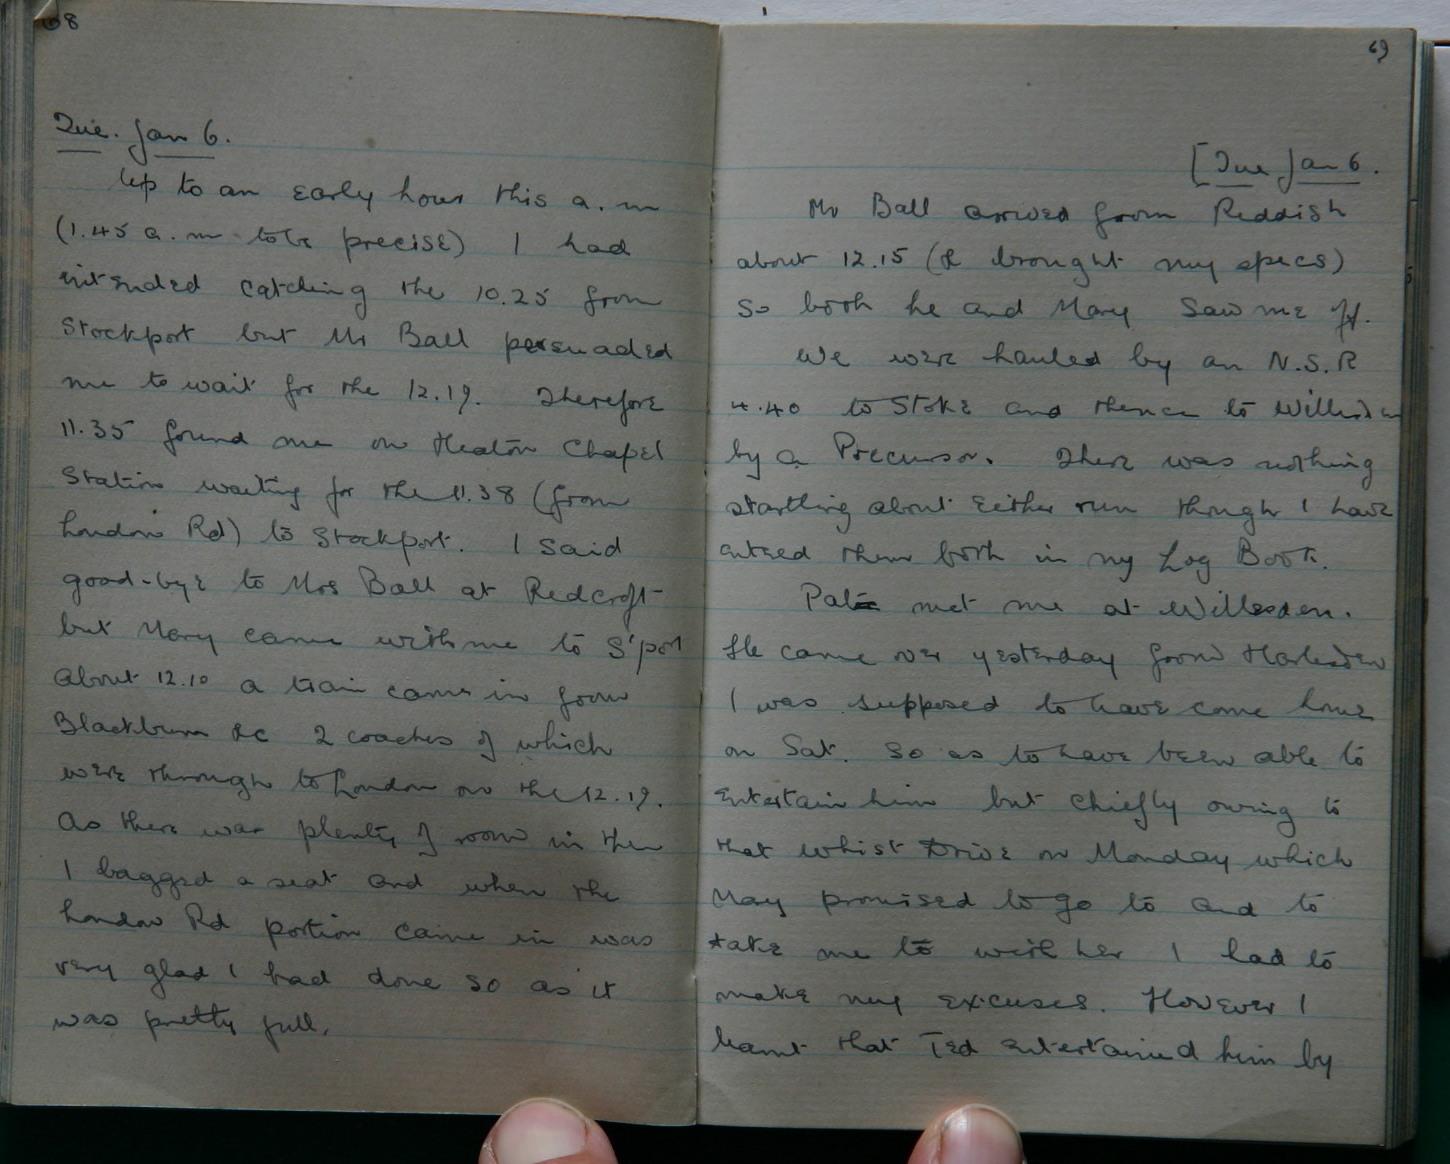 68
Tue. Jan 6.
Up to an early hour this a.m
(1.45 a.m to be precise) I had
intended catching the 10.25 from
Stockport but Mr Ball persuaded
me to wait for the 12.19. Therefore
11.35 found me on Heaton Chapel
Station waiting for the 11.38 (from
London Rd) to Stockport. I said
good-bye to Mrs Ball at Redcroft
but Mary came with me to S'port
About 12.10 a train came in from
Blackburn &c 2 coaches of which
were through to London on the 12.19.
As there was plenty of room in them
I bagged a seat and when the
London Rd portion came in was
very glad I had done so as it
was pretty full.
69
[Tue Jan 6.
Mr Ball arrived from Reddish
about 12.15 (& brought my specs)
so both he and Mary saw me off.
We were hauled by an N.S.R
4.40 to Stoke and thence to Willesden
by a Precursor. There was nothing
startling about either run though I have
entered them both in my Log Book.
met me at Willesden.
He came over yesterday from Harlesden
I was supposed to have come home
on Sat. so as to have been able to
entertain him but chiefly owing to
that Whist Drive on Monday which
Mary promised to go to and to
take me to with her I had to
make my excuses. However I
learnt that Ted entertained him by